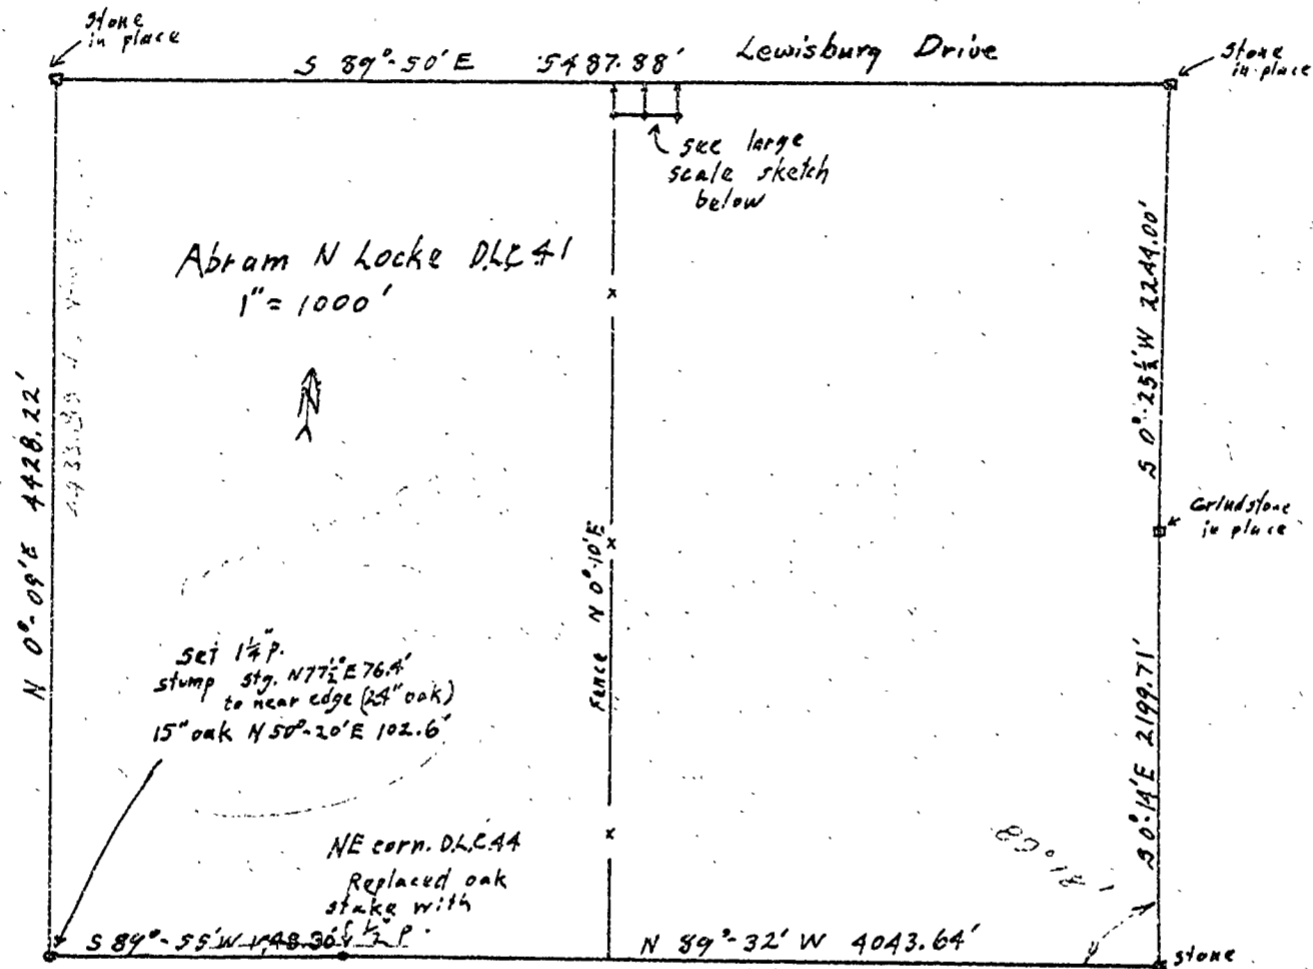 stone
in place
S 89°-50' E 5487.88' Lewisburg Drive
stone
in place
see large
scale sketch
below
Abram N Locke D.L.C. 41
1" = 1000'
N 0°-09' E 4428.22'
S 0°-25½' W 2244.00'
Grindstone
in place
Fence N 0°-10' E
set 1¼" p.
stump stg. N77½°E 76.4'
to near edge (24" oak)
15" oak N 50°-20' E 102.6'
S 0°-14' E 2199.71'
NE corn. D.L.C. 44
Replaced oak
stake with
½" p.
S 89°-55' W
N 89°-32' W 4043.64'
stone